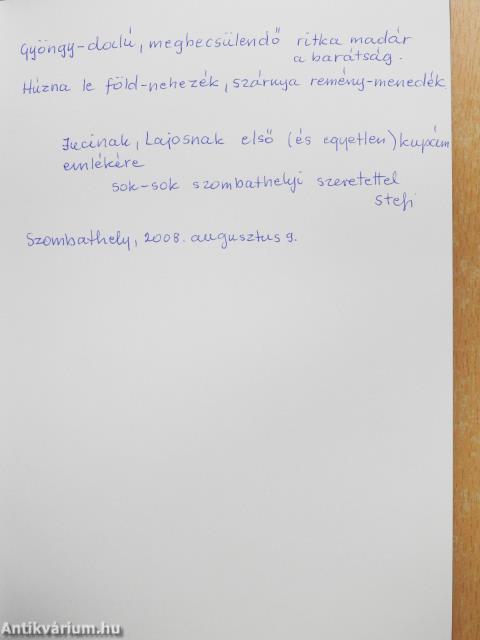 Gyöngy-dalú, megbecsülendő ritka madár
a barátság.
Húzna le föld-nehezék, szárnya remény-menedék.
Jucinak, Lajosnak első (és egyetlen) kupám
emlékére
sok-sok szombathelyi szeretettel
Stefi
Szombathely, 2008. augusztus 9.
Antikvárium.hu